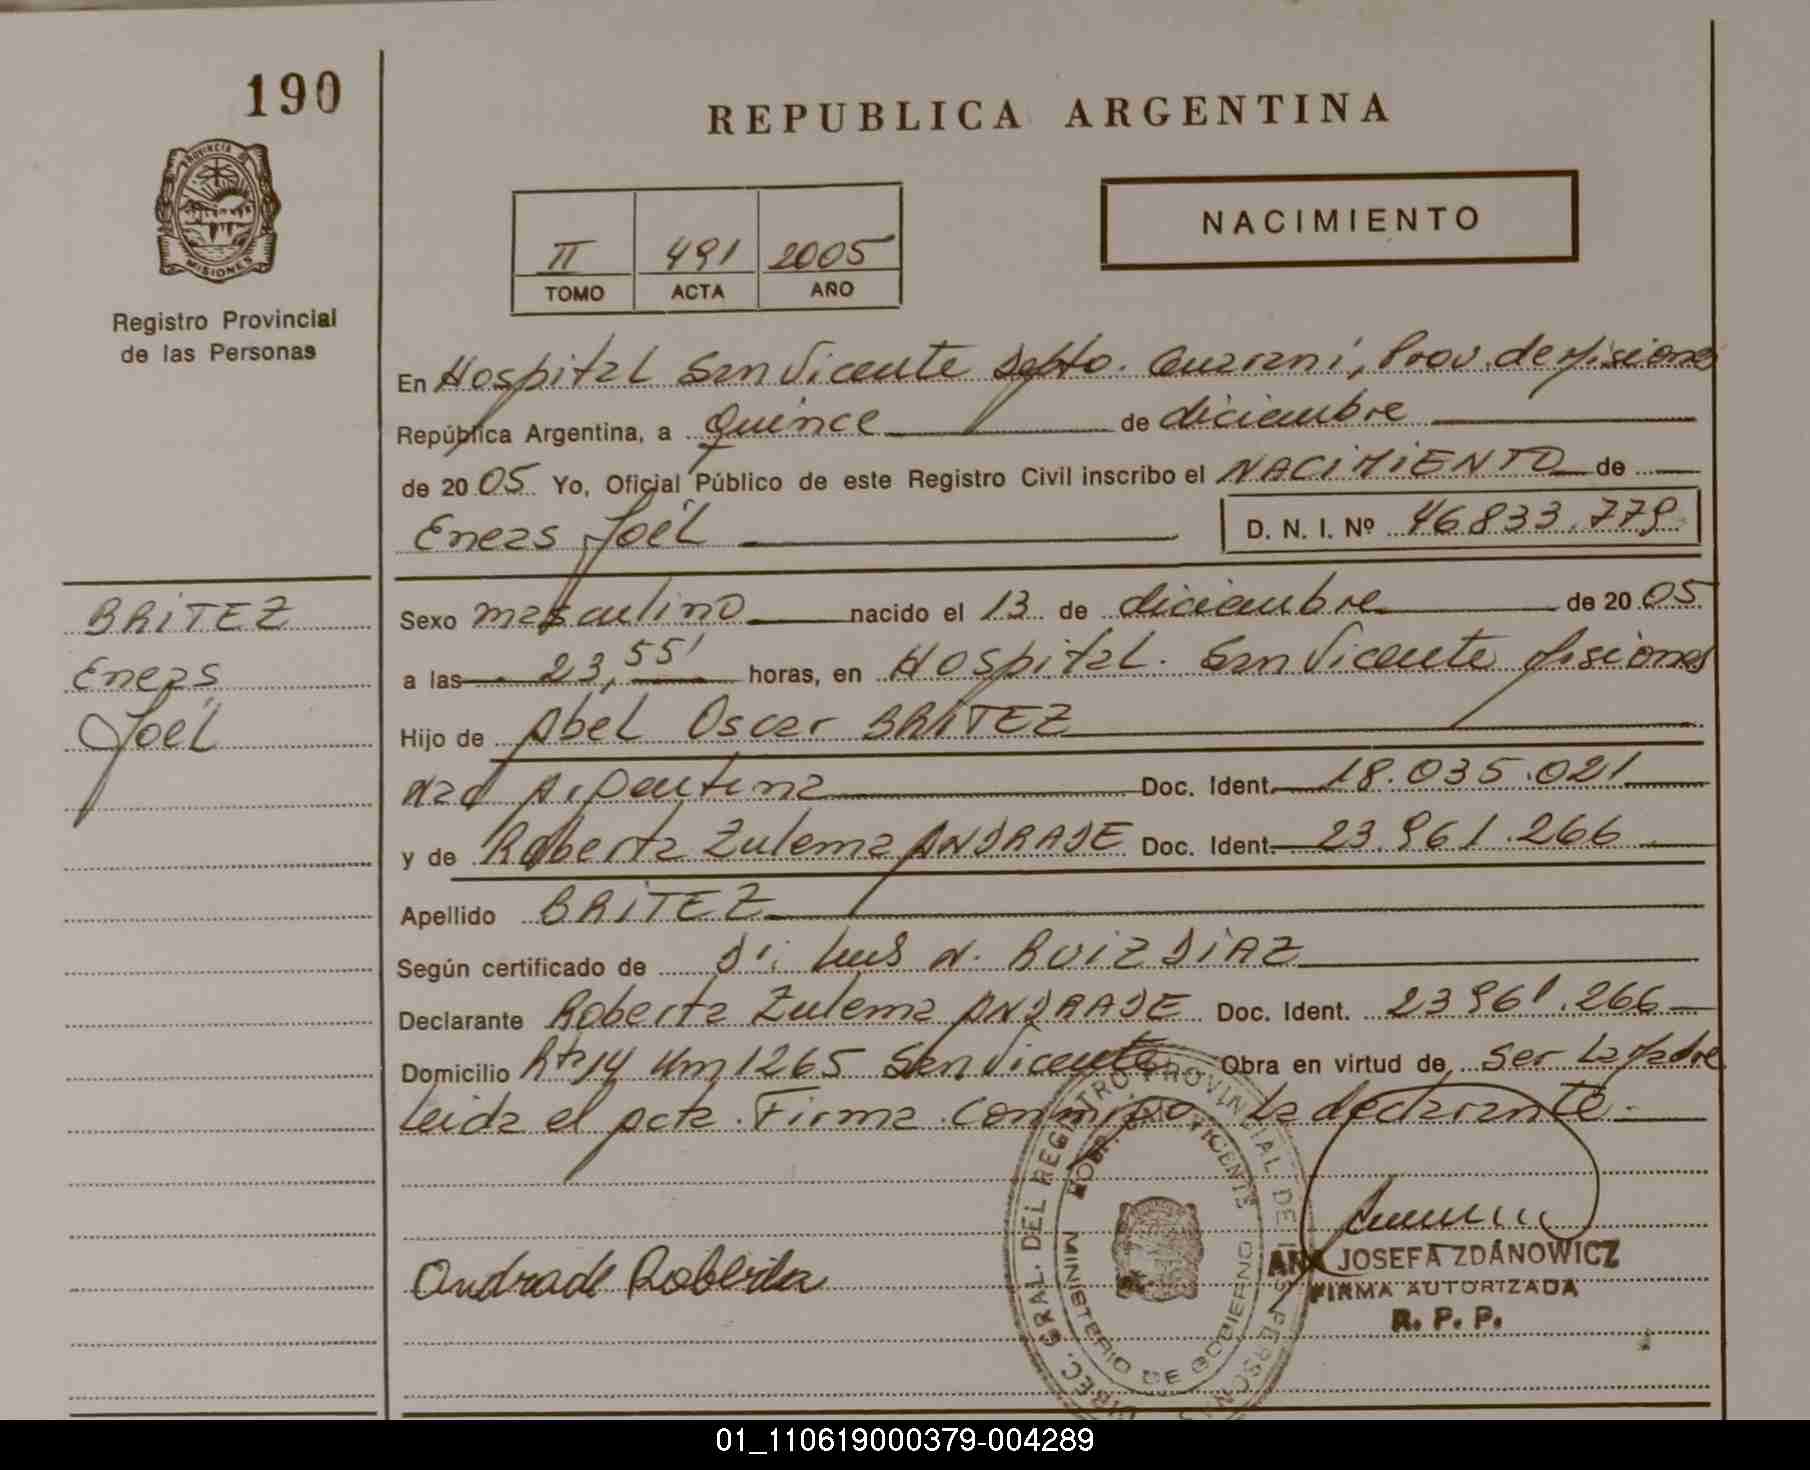 190
REPUBLICA ARGENTINA
PROVINCIA DE
MISIONES
Registro Provincial
de las Personas
II 491 2005
TOMO ACTA AÑO
NACIMIENTO
En Hospital San Vicente Dpto. Guaraní, Prov. de Misiones
República Argentina, a Quince de diciembre
de 2005 Yo, Oficial Público de este Registro Civil inscribo el NACIMIENTO de
Eneas Joél
D. N. I. Nº 46833.779
BRITEZ
Eneas
Joél
Sexo masculino nacido el 13 de diciembre de 2005
a las 23,55' horas, en Hospital. San Vicente Misiones
Hijo de Abel Oscar BRITEZ
Nac Argentina Doc. Ident. 18.035.021
y de Roberta Zulema ANDRADE Doc. Ident. 23.961.266
Apellido BRITEZ
Según certificado de Dr. Luis N. RUIZ DIAZ
Declarante Roberta Zulema ANDRADE Doc. Ident. 23961.266
Domicilio Rta 14 Km 1265 San Vicente Obra en virtud de Ser La Madre
Leida el acta. Firma Conmigo La declarante.
DIREC. GRAL. DEL REGISTRO PROVINCIAL DE LAS PERSONAS
HOSP. SAN VICENTE
MINISTERIO DE GOBIERNO
Andrade Roberta
ANA JOSEFA ZDÁNOWICZ
FIRMA AUTORIZADA
R. P. P.
01_110619000379-004289